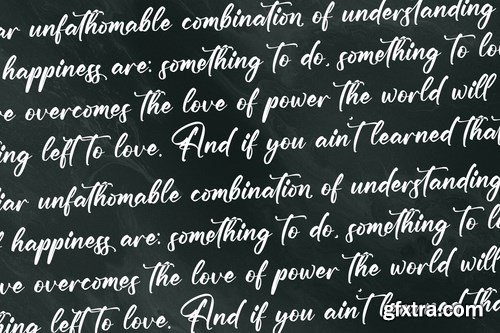 unfathomable combination of understanding
happiness are: something to do, something to
overcomes the love of power the world will
left to love. And if you ain't learned that
unfathomable combination of understanding
happiness are: something to do, something to
overcomes the love of power the world will
left to love. And if you ain't learned
gfxtra.com